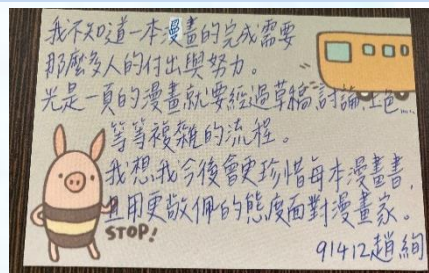 我不知道一本漫畫的完成需要
那麼多人的付出與努力。
光是一頁的漫畫就要經過草稿、討論、上色……
等等複雜的流程。
我想我今後會更珍惜每本漫畫書,
且用更敬佩的態度面對漫畫家。
STOP!
91412趙絢